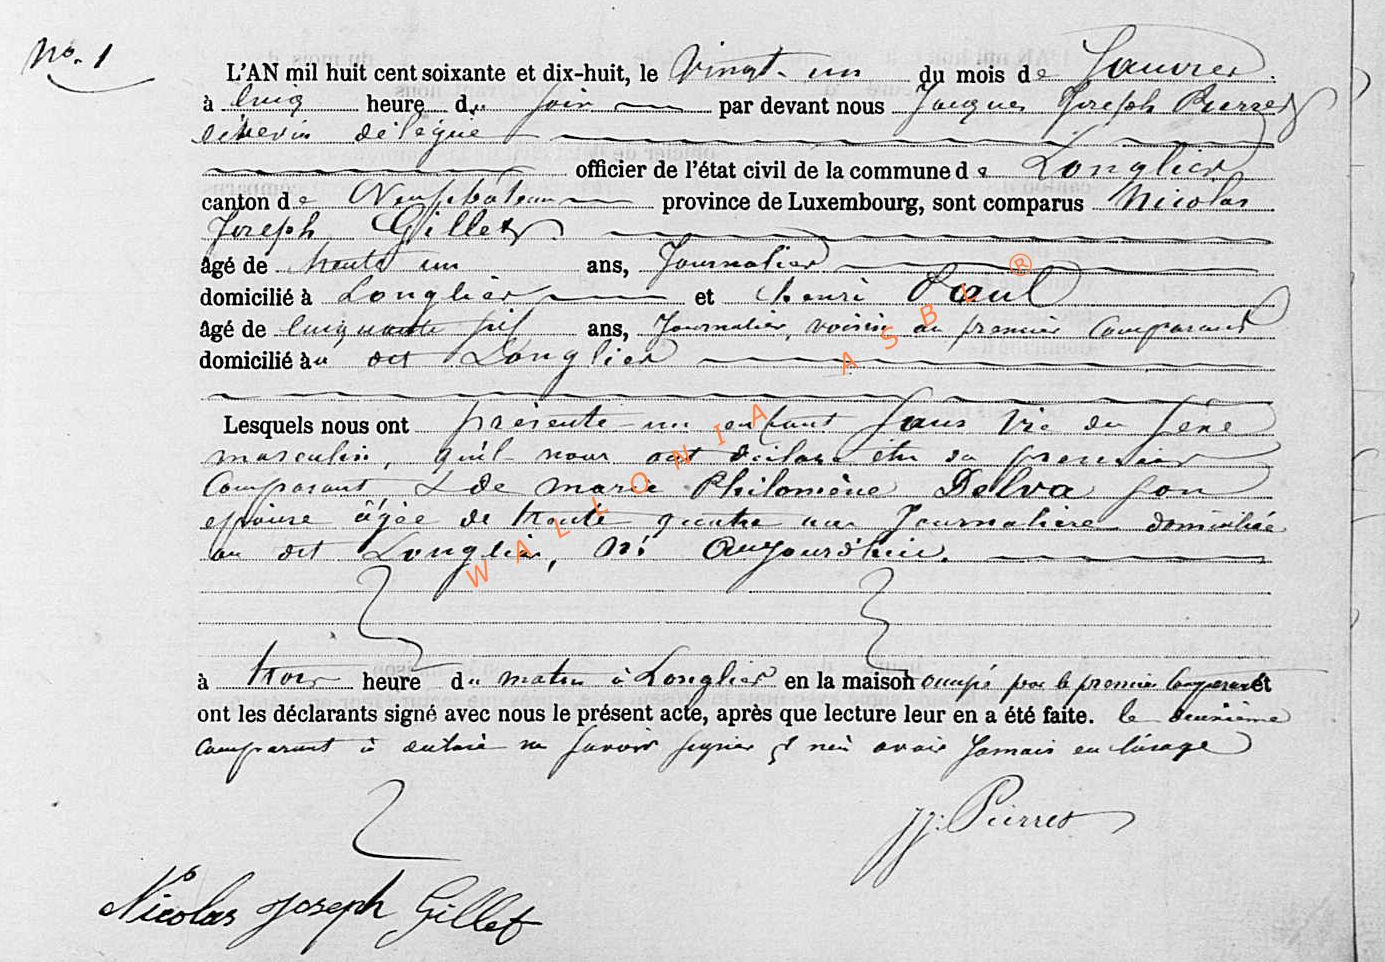 No. 1
L'AN mil huit cent soixante et dix-huit, le Vingt-un du mois de Janvier.
à Cinq heure du soir par devant nous Jacques Joseph Pierret
échevin délégué
officier de l'état civil de la commune de Longlier
canton de Neufchâteau province de Luxembourg, sont comparus Nicolas
Joseph Gillet
âgé de trente un ans, Journalier
domicilié à Longlier et henri Paul
âgé de Cinquante six ans, Journalier, voisin du premier Comparant
domicilié au dit Longlier
Lesquels nous ont présenté un enfant Sans Vie du sexe
masculin, qu'il nous ont déclaré être du premier
Comparant & de marie Philomène Delva son
épouse âgée de trente quatre ans Journalière domiciliée
au dit Longlier, Né Aujourd'hui.
à trois heure du matin à Longlier en la maison occupé par le premier Comparant et
ont les déclarants signé avec nous le présent acte, après que lecture leur en a été faite. le deuxième
Comparant à déclaré ne savoir signer & n'en avoir Jamais eu l'usage
JJ. Pierret
Nicolas Joseph Gillet
WALLONIA ASBL ®